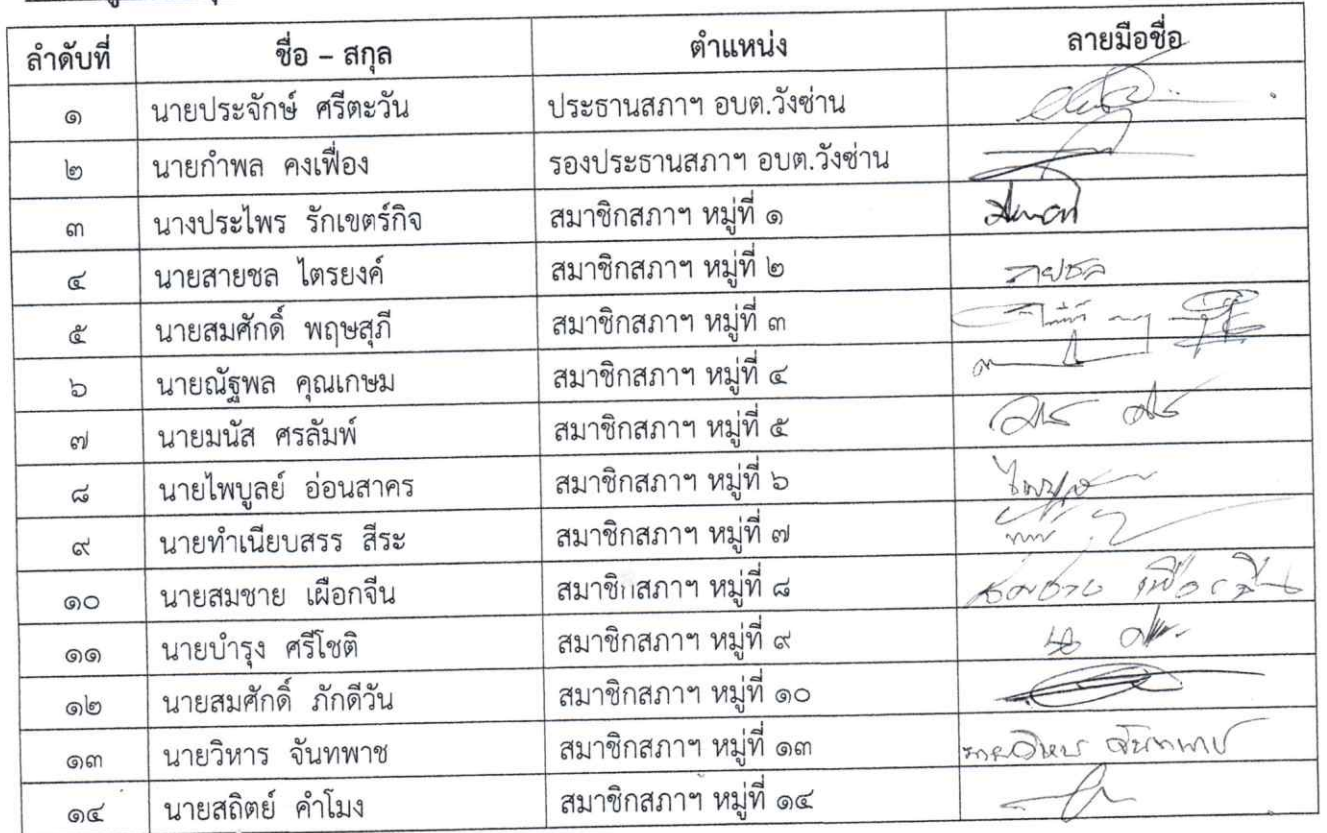 ลำดับที่ ชื่อ – สกุล ตำแหน่ง ลายมือชื่อ
๑ นายประจักษ์ ศรีตะวัน ประธานสภาฯ อบต.วังซ่าน
๒ นายกำพล คงเฟื่อง รองประธานสภาฯ อบต.วังซ่าน
๓ นางประไพร รักเขตร์กิจ สมาชิกสภาฯ หมู่ที่ ๑
๔ นายสายชล ไตรยงค์ สมาชิกสภาฯ หมู่ที่ ๒
๕ นายสมศักดิ์ พฤษสุภี สมาชิกสภาฯ หมู่ที่ ๓
๖ นายณัฐพล คุณเกษม สมาชิกสภาฯ หมู่ที่ ๔
๗ นายมนัส ศรลัมพ์ สมาชิกสภาฯ หมู่ที่ ๕
๘ นายไพบูลย์ อ่อนสาคร สมาชิกสภาฯ หมู่ที่ ๖
๙ นายทำเนียบสรร สีระ สมาชิกสภาฯ หมู่ที่ ๗
๑๐ นายสมชาย เผือกจีน สมาชิกสภาฯ หมู่ที่ ๘ สมชาย เผือกจีน
๑๑ นายบำรุง ศรีโชติ สมาชิกสภาฯ หมู่ที่ ๙
๑๒ นายสมศักดิ์ ภักดีวัน สมาชิกสภาฯ หมู่ที่ ๑๐
๑๓ นายวิหาร จันทพาช สมาชิกสภาฯ หมู่ที่ ๑๓ นายวิหาร จันทพาช
๑๔ นายสถิตย์ คำโมง สมาชิกสภาฯ หมู่ที่ ๑๔